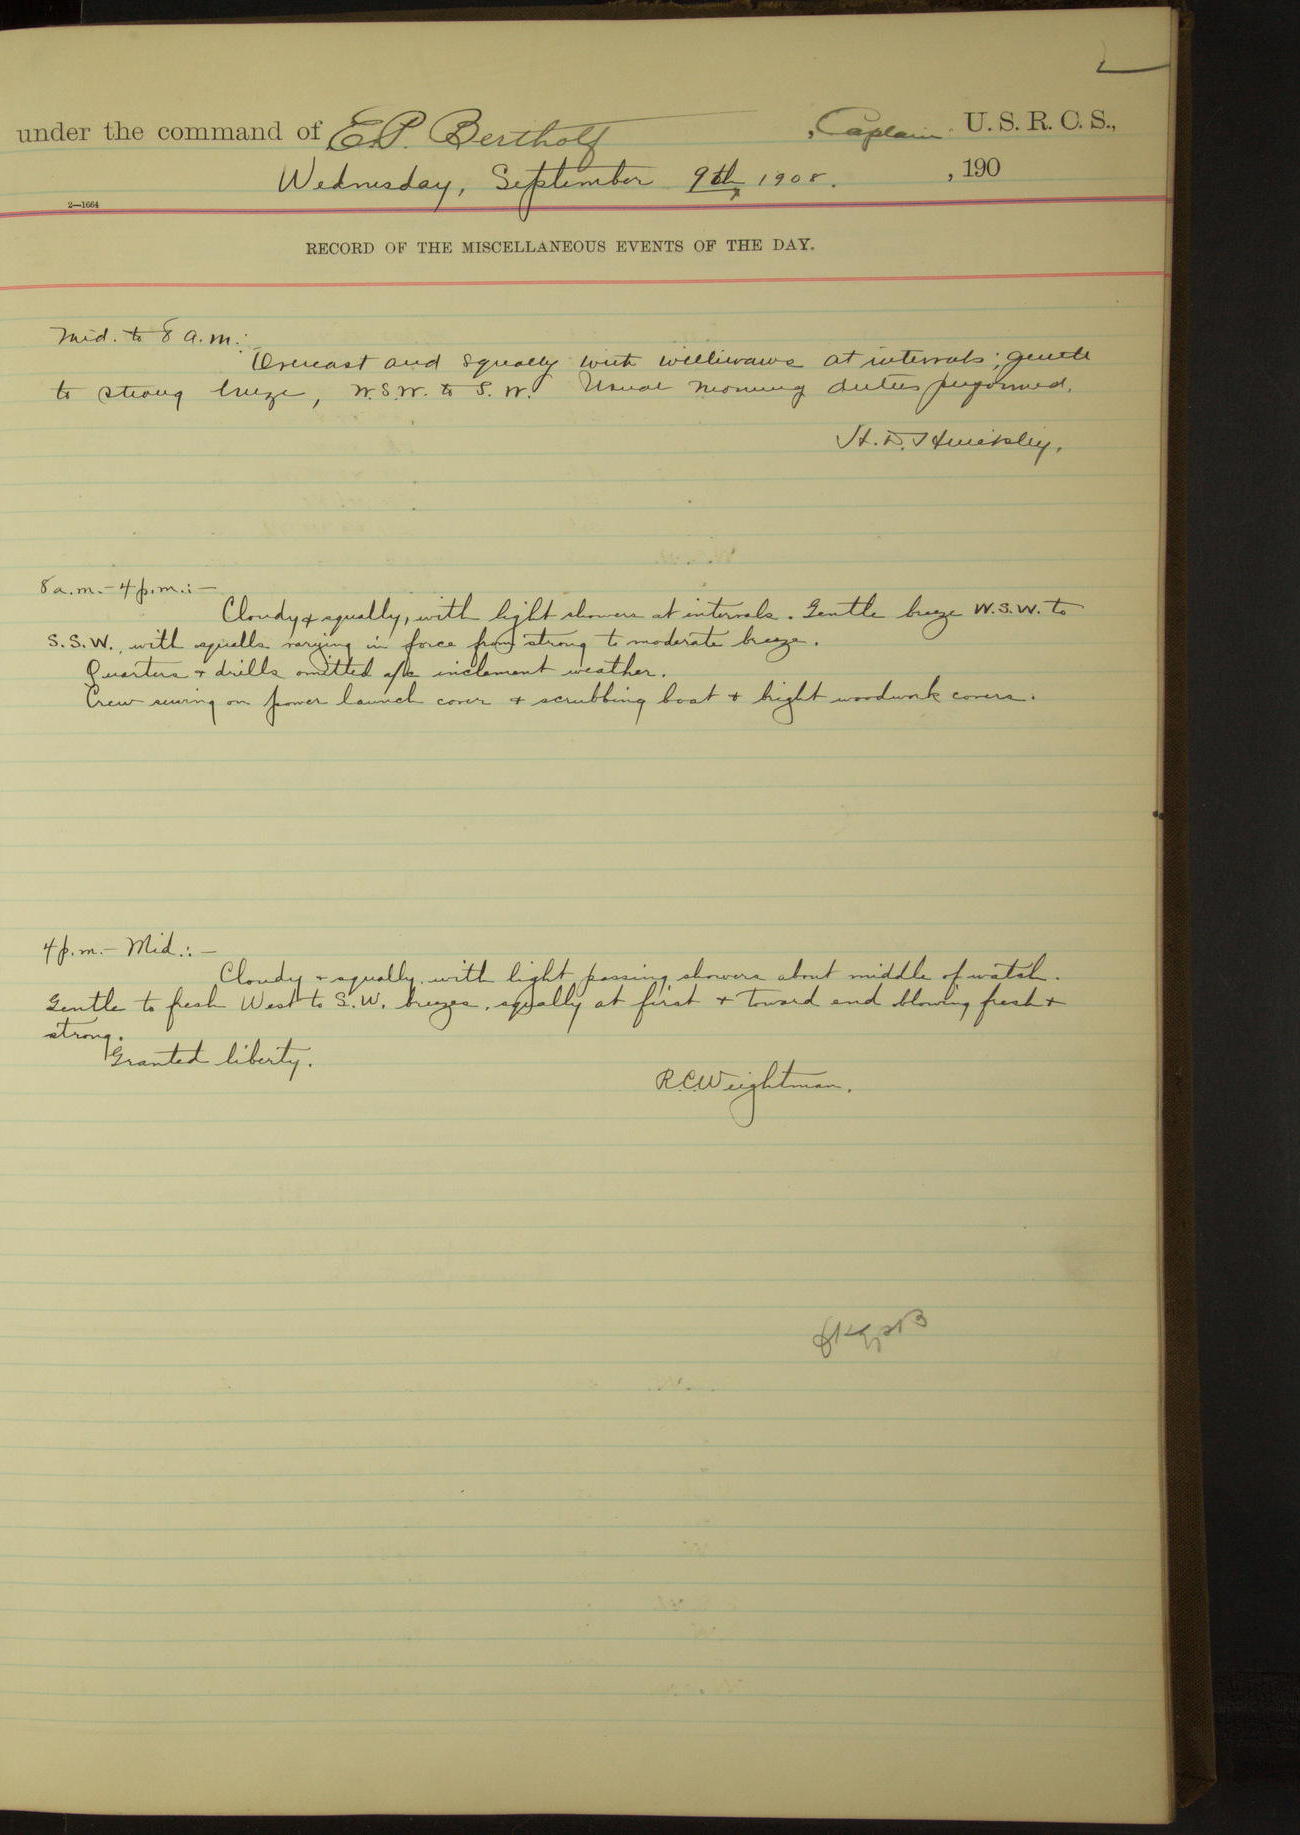 under the command of E.P. Bertholf, Captain U. S. R. C. S.,
Wednesday, September 9th, 1908. , 190
2—1664
RECORD OF THE MISCELLANEOUS EVENTS OF THE DAY.
Mid. to 8 a.m.:
Overcast and squally with williwaws at intervals; gentle
to strong breeze, W.S.W. to S.W. Usual morning duties performed.
H. D. Hinckley.
8 a.m. - 4 p.m.: -
Cloudy & squally, with light showers at intervals. Gentle breeze W.S.W. to
S.S.W., with squalls varying in force from strong to moderate breeze.
Quarters & drills omitted a/c inclement weather.
Crew sewing on power launch cover & scrubbing boat & bright woodwork covers.
4 p.m. - Mid.: -
Cloudy & squally, with light passing showers about middle of watch.
Gentle to fresh West to S.W. breezes, squally at first & toward end blowing fresh &
strong.
Granted liberty.
R.C. Weightman.